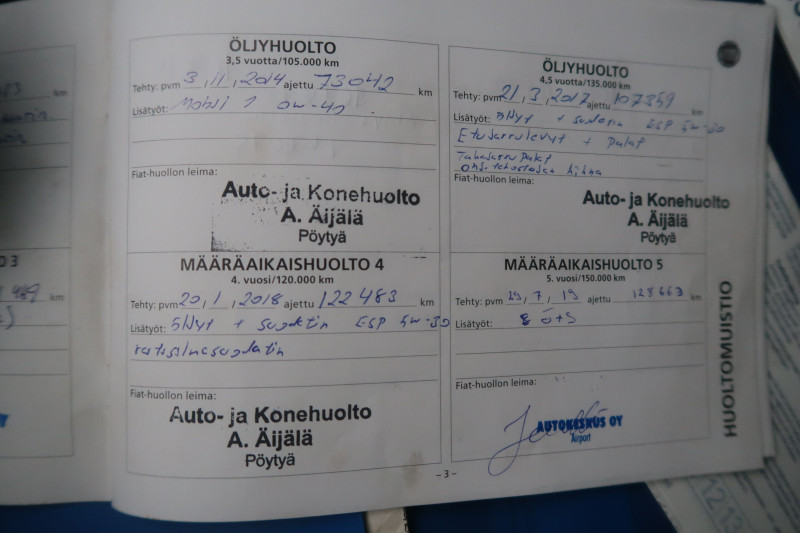 ÖLJYHUOLTO
3,5 vuotta/105.000 km
Tehty: pvm 3, 11, 2014 ajettu 73042 km
Lisätyöt: Mobil 1 0W-40
Fiat-huollon leima:
Auto- ja Konehuolto
A. Äijälä
Pöytyä
ÖLJYHUOLTO
4,5 vuotta/135.000 km
Tehty: pvm 21, 3, 2017 ajettu 107359 km
Lisätyöt: + ESP 5W-30
Etujarrulevyt + Palat
Takajarru Palat
hihna
Fiat-huollon leima:
Auto- ja Konehuolto
A. Äijälä
Pöytyä
MÄÄRÄAIKAISHUOLTO 4
4. vuosi/120.000 km
Tehty: pvm 20, 1, 2018 ajettu 122483 km
Lisätyöt: + ESP 5W-30
Fiat-huollon leima:
Auto- ja Konehuolto
A. Äijälä
Pöytyä
MÄÄRÄAIKAISHUOLTO 5
5. vuosi/150.000 km
Tehty: pvm 19, 7, 19 ajettu 128663 km
Lisätyöt: Ö+S
Fiat-huollon leima:
AUTOKESKUS OY
Airport
HUOLTOMUISTIO
- 3 -
km
km